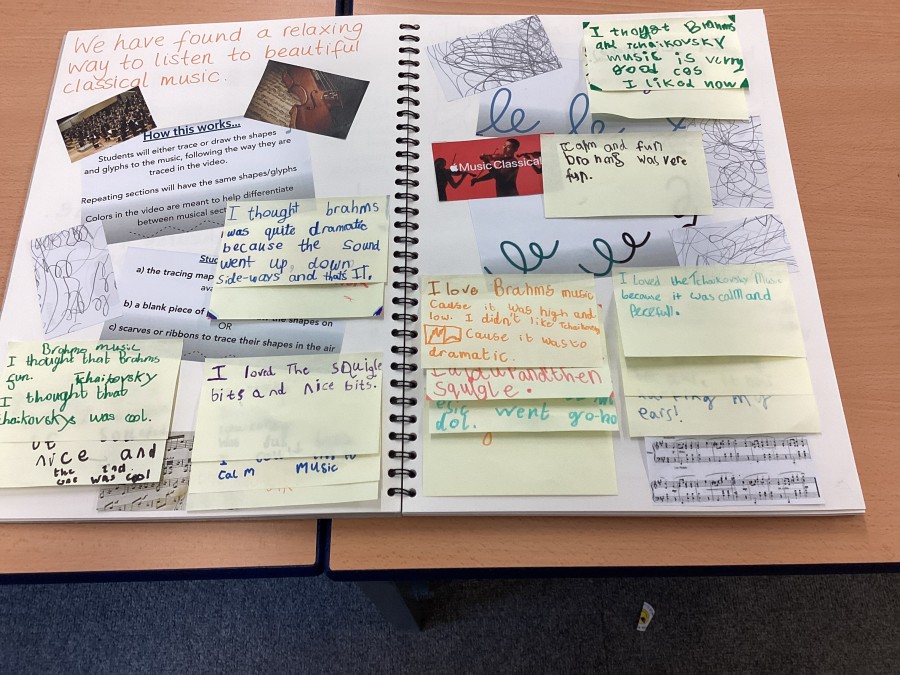 We have found a relaxing
way to listen to beautiful
classical music.
How this works...
Students will either trace or draw the shapes
and glyphs to the music, following the way they are
traced in the video.
Repeating sections will have the same shapes/glyphs
Colors in the video are meant to help differentiate
between musical sec
I thought brahms
was quite dramatic
because the sound
went up, down,
side-ways and thats IT.
Stu
a) the tracing map
b) a blank piece of
the shapes on
OR
c) scarves or ribbons to trace their shapes in the air
Brahms music
I thought that Brahms
fun. Tchaikovsky
I thought that
haikovskys was cool.
nice and
the 2nd
one was cool
I loved The squigle
bits and nice bits.
Calm Music
I thogt Brahms
and Tchaikovsky
music is verry
good cos
I liked now
le le
Music Classical
Calm and fun
brahms was vere
fun.
le le
I love Brahms music
Cause it was high and
low. I didn't like Tchaikovsky
Cause it was to
dramatic.
and then
squigle.
dol. went go-ho
I loved the Tchaikovsky Music
because it was calm and
Pecefull.
my
ears!